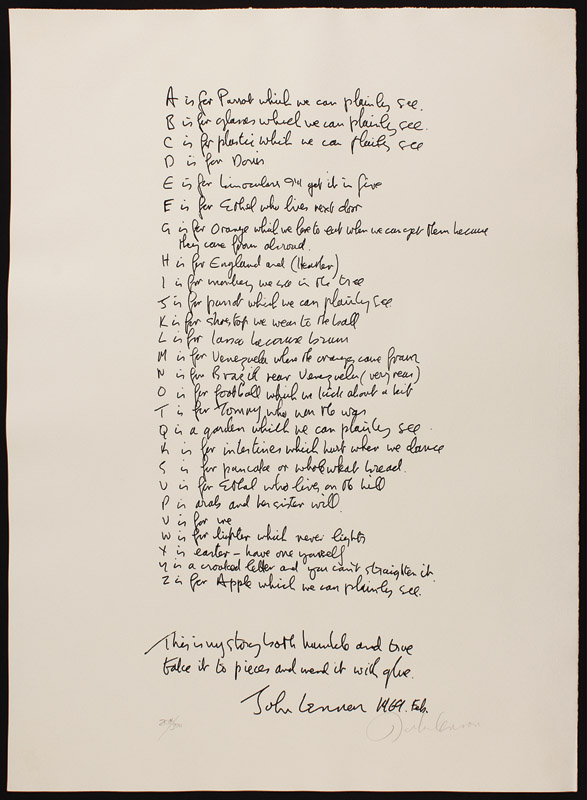 A is for Parrot which we can plainly see.
B is for glasses which we can plainly see.
C is for plastic which we can plainly see
D is for Doris
E is for binoculars I'll get it in five
F is for Ethel who lives next door
G is for Orange which we love to eat when we can get them because
they come from abroad.
H is for England and (Heather)
I is for monkey we see in the tree
J is for parrot which we can plainly see
K is for shoetop we wear to the ball
L is for lasso because brown
M is for Venezuela where the oranges come from
N is for Brazil near Venezuela (very near)
O is for football which we kick about a bit
T is for Tommy who won the war
Q is a garden which we can plainly see.
R is for intestines which hurt when we dance
S is for pancake or whole wheat bread.
U is for Ethel who lives on the hill
P is arab and her sister will.
V is for me
W is for lighter which never lights
X is easter - have one yourself
Y is a crooked letter and you can't straighten it.
Z is for Apple which we can plainly see.
This is my story both humble and true
take it to pieces and mend it with glue.
John Lennon 1969. Feb.